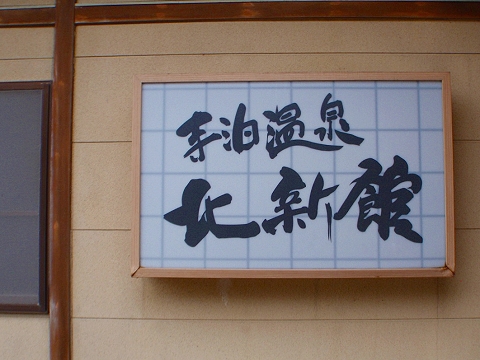 寺泊温泉
北新館